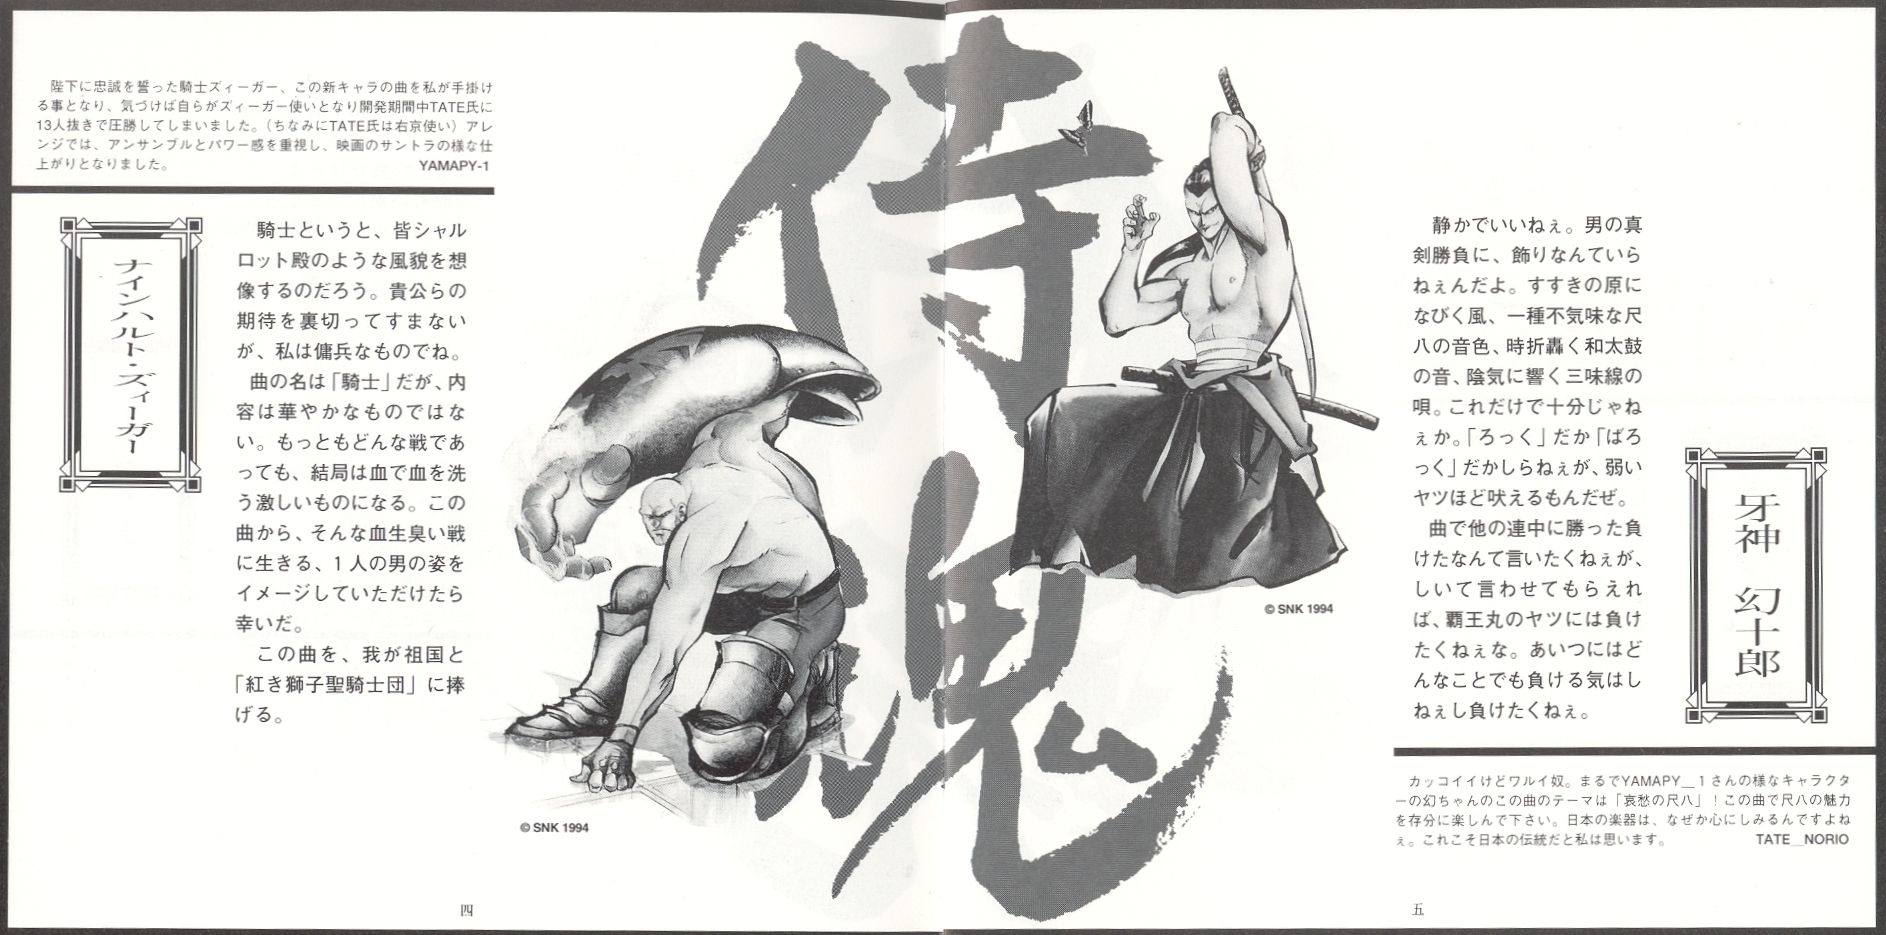 陛下に忠誠を誓った騎士ズィーガー、この新キャラの曲を私が手掛け
る事となり、気づけば自らがズィーガー使いとなり開発期間中TATE氏に
13人抜きで圧勝してしまいました。（ちなみにTATE氏は右京使い）アレ
ンジでは、アンサンブルとパワー感を重視し、映画のサントラの様な仕
上がりとなりました。
YAMAPY-1
ナインハルト・ズィーガー
騎士というと、皆シャル
ロット殿のような風貌を想
像するのだろう。貴公らの
期待を裏切ってすまない
が、私は傭兵なものでね。
曲の名は「騎士」だが、内
容は華やかなものではな
い。もっともどんな戦であ
っても、結局は血で血を洗
う激しいものになる。この
曲から、そんな血生臭い戦
に生きる、1人の男の姿を
イメージしていただけたら
幸いだ。
この曲を、我が祖国と
「紅き獅子聖騎士団」に捧
げる。
© SNK 1994
四
侍魂
© SNK 1994
静かでいいねぇ。男の真
剣勝負に、飾りなんていら
ねぇんだよ。すすきの原に
なびく風、一種不気味な尺
八の音色、時折轟く和太鼓
の音、陰気に響く三味線の
唄。これだけで十分じゃね
ぇか。「ろっく」だか「ばろ
っく」だかしらねぇが、弱い
ヤツほど吠えるもんだぜ。
曲で他の連中に勝った負
けたなんて言いたくねぇが、
しいて言わせてもらえれ
ば、覇王丸のヤツには負け
たくねぇな。あいつにはど
んなことでも負ける気はし
ねぇし負けたくねぇ。
牙神 幻十郎
カッコイイけどワルイ奴。まるでYAMAPY＿1さんの様なキャラクタ
ーの幻ちゃんのこの曲のテーマは「哀愁の尺八」！この曲で尺八の魅力
を存分に楽しんで下さい。日本の楽器は、なぜか心にしみるんですよね
ぇ。これこそ日本の伝統だと私は思います。
TATE＿NORIO
五